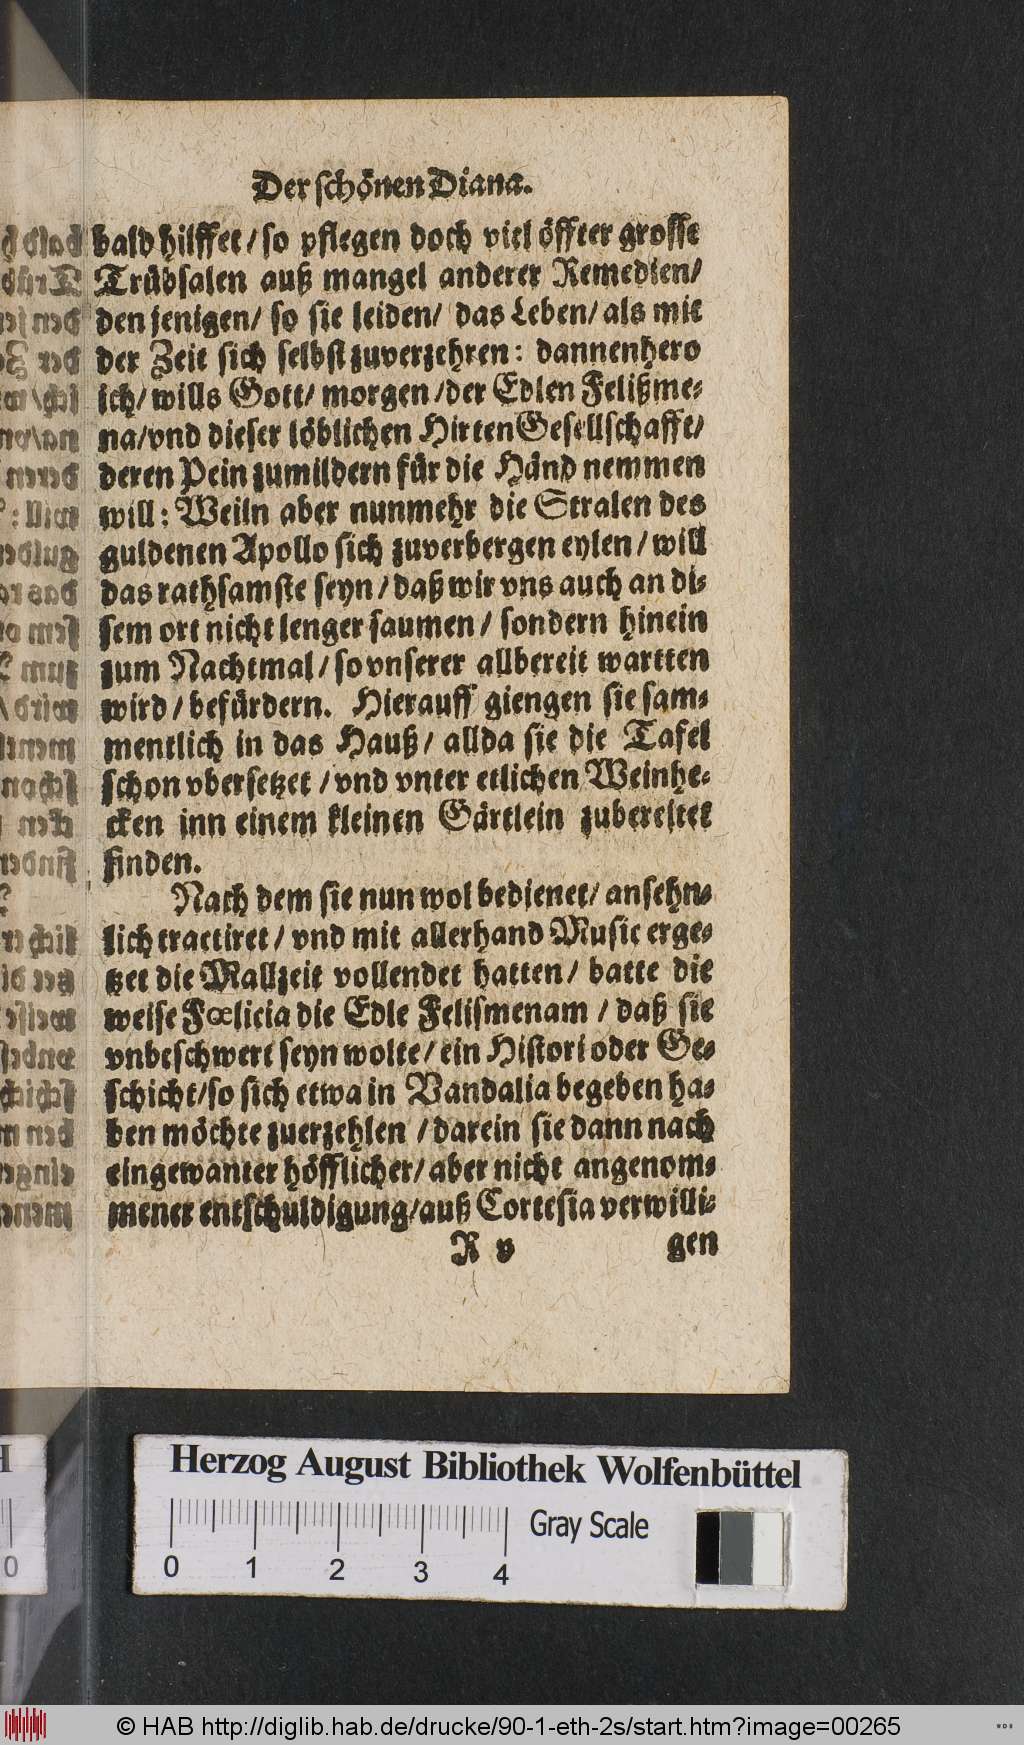 Der schönen Diana.
bald hilffet / so pflegen doch viel öffter grosse
Trübsalen auß mangel anderer Remedien/
den jenigen/ so sie leiden/ das Leben/ als mit
der Zeit sich selbst zuverzehren: dannenhero
ich/ wills Gott/ morgen /der Edlen Felißme-
na/vnd dieser löblichen Hirten Gesellschafft/
deren Pein zumildern für die Händ nemmen
will: Weiln aber nunmehr die Stralen des
guldenen Apollo sich zuverbergen eylen / will
das rathsamste seyn / daß wir vns auch an di-
sem ort nicht lenger saumen / sondern hinein
zum Nachtmal / so vnserer allbereit wartten
wird / befürdern. Hierauff giengen sie sam-
mentlich in das Hauß / allda sie die Tafel
schon vbersetzet / vnd vnter etlichen Weinhe-
cken inn einem kleinen Gärtlein zubereitet
finden.
Nach dem sie nun wol bedienet/ ansehn-
lich tractiret / vnd mit allerhand Music erge-
tzet die Mallzeit vollendet hatten / batte die
weise Fœlicia die Edle Felismenam / daß sie
vnbeschwert seyn wolte / ein Histori oder Ge-
schicht/so sich etwa in Vandalia begeben ha-
ben möchte zuerzehlen / darein sie dann nach
eingewanter höfflicher/ aber nicht angenom-
mener entschuldigung/auß Cortesia verwilli-
R v gen
Herzog August Bibliothek Wolfenbüttel
Gray Scale
0 1 2 3 4
© HAB http://diglib.hab.de/drucke/90-1-eth-2s/start.htm?image=00265